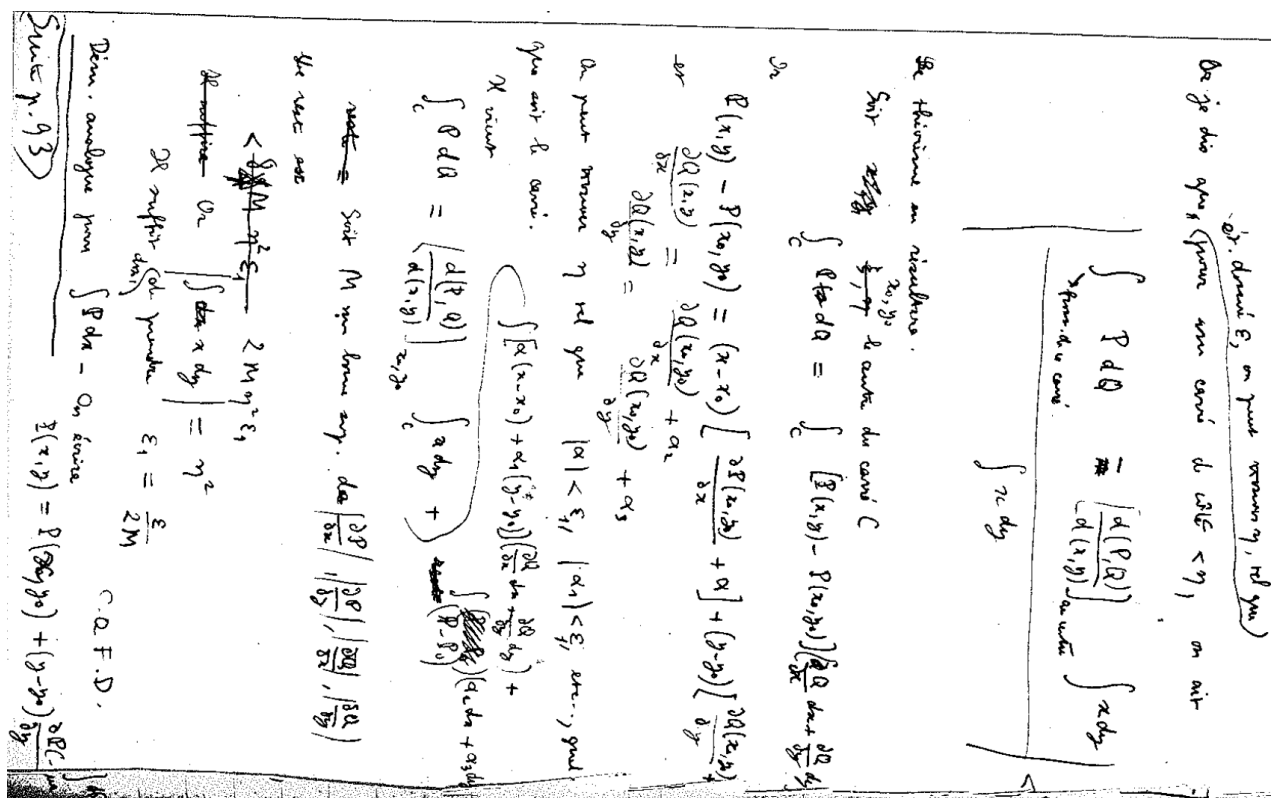 Or je dis que, (pour un carré de côté < η, on ait
ét. donné ε, on peut trouver η, tel que)
∫ P dQ = [d(P,Q)/d(x,y)] au centre ∫ x dy
périm. de ce carré
∫ x dy
<
Le théorème en résultera.
Soit x₀, y₀ le centre du carré C
∫_C P dQ = ∫_C [P(x,y) − P(x₀,y₀)] (∂Q/∂x dx + ∂Q/∂y dy)
Or
P(x,y) − P(x₀,y₀) = (x−x₀) [∂P(x₀,y₀)/∂x + α] + (y−y₀) [∂Q(x₀,y₀)/∂y +
et ∂Q(x,y)/∂x = ∂Q(x₀,y₀)/∂x + α₂
∂Q(x,y)/∂y = ∂Q(x₀,y₀)/∂y + α₃
On peut trouver η tel que |α| < ε₁, |α₁| < ε₁, etc.., quel
que soit le carré.
Il vient ∫ [α(x−x₀) + α₁(y−y₀)] (∂Q/∂x dx + ∂Q/∂y dy) +
∫_C P dQ = [d(P,Q)/d(x,y)] x₀,y₀ ∫_C x dy + ∫ (P−P₀) (α₂ dx + α₃ dy
Soit M une borne sup. de |∂P/∂x|, |∂P/∂y|, |∂Q/∂x|, |∂Q/∂y|
Le reste est
< 2Mη²ε₁
Or |∫ x dy| = η²
Il suffit donc de prendre ε₁ = ε/2M
C.Q.F.D.
Dém. analogue pour ∫ P dx − On écrira
P(x,y) = P(x₀,y₀) + (y−y₀) ∂P(
(Suite p. 93)